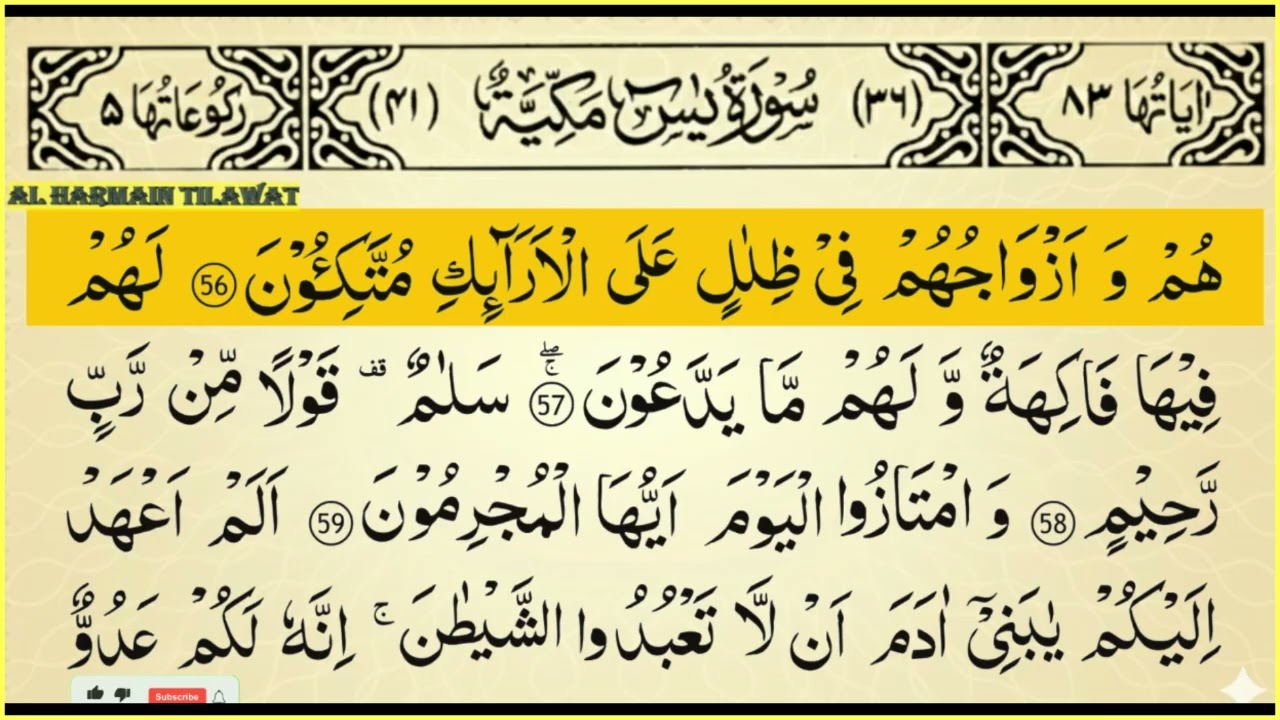 اٰيَاتُهَا ٨٣ (٣٦) سُوْرَةُ يٰسٓ مَكِّيَّةٌ (٤١) رُكُوْعَاتُهَا ٥
AL HARMAIN TILAWAT
هُمْ وَ اَزْوَاجُهُمْ فِیْ ظِلٰلٍ عَلَی الْاَرَآىِٕكِ مُتَّكِـُٔوْنَ 56 لَهُمْ
فِیْهَا فَاكِهَةٌ وَّ لَهُمْ مَّا یَدَّعُوْنَ 57 ۚۖ سَلٰمٌ قف قَوْلًا مِّنْ رَّبٍّ
رَّحِیْمٍ 58 وَ امْتَازُوا الْیَوْمَ اَیُّهَا الْمُجْرِمُوْنَ 59 اَلَمْ اَعْهَدْ
اِلَیْكُمْ یٰبَنِیْۤ اٰدَمَ اَنْ لَّا تَعْبُدُوا الشَّیْطٰنَ ۚ اِنَّهٗ لَكُمْ عَدُوٌّ
Subscribe